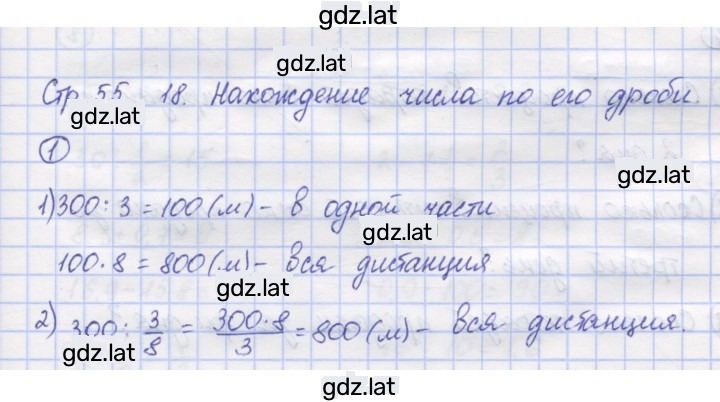 gdz.lat
gdz.lat
Стр 55 18. Нахождение числа по его дроби.
gdz.lat
1
gdz.lat
1) 300 : 3 = 100 (м) - в одной части
gdz.lat
100 · 8 = 800 (м) - вся дистанция
gdz.lat
2) 300 : 3/8 = 300·8/3 = 800 (м) - вся дистанция.
gdz.lat
gdz.lat